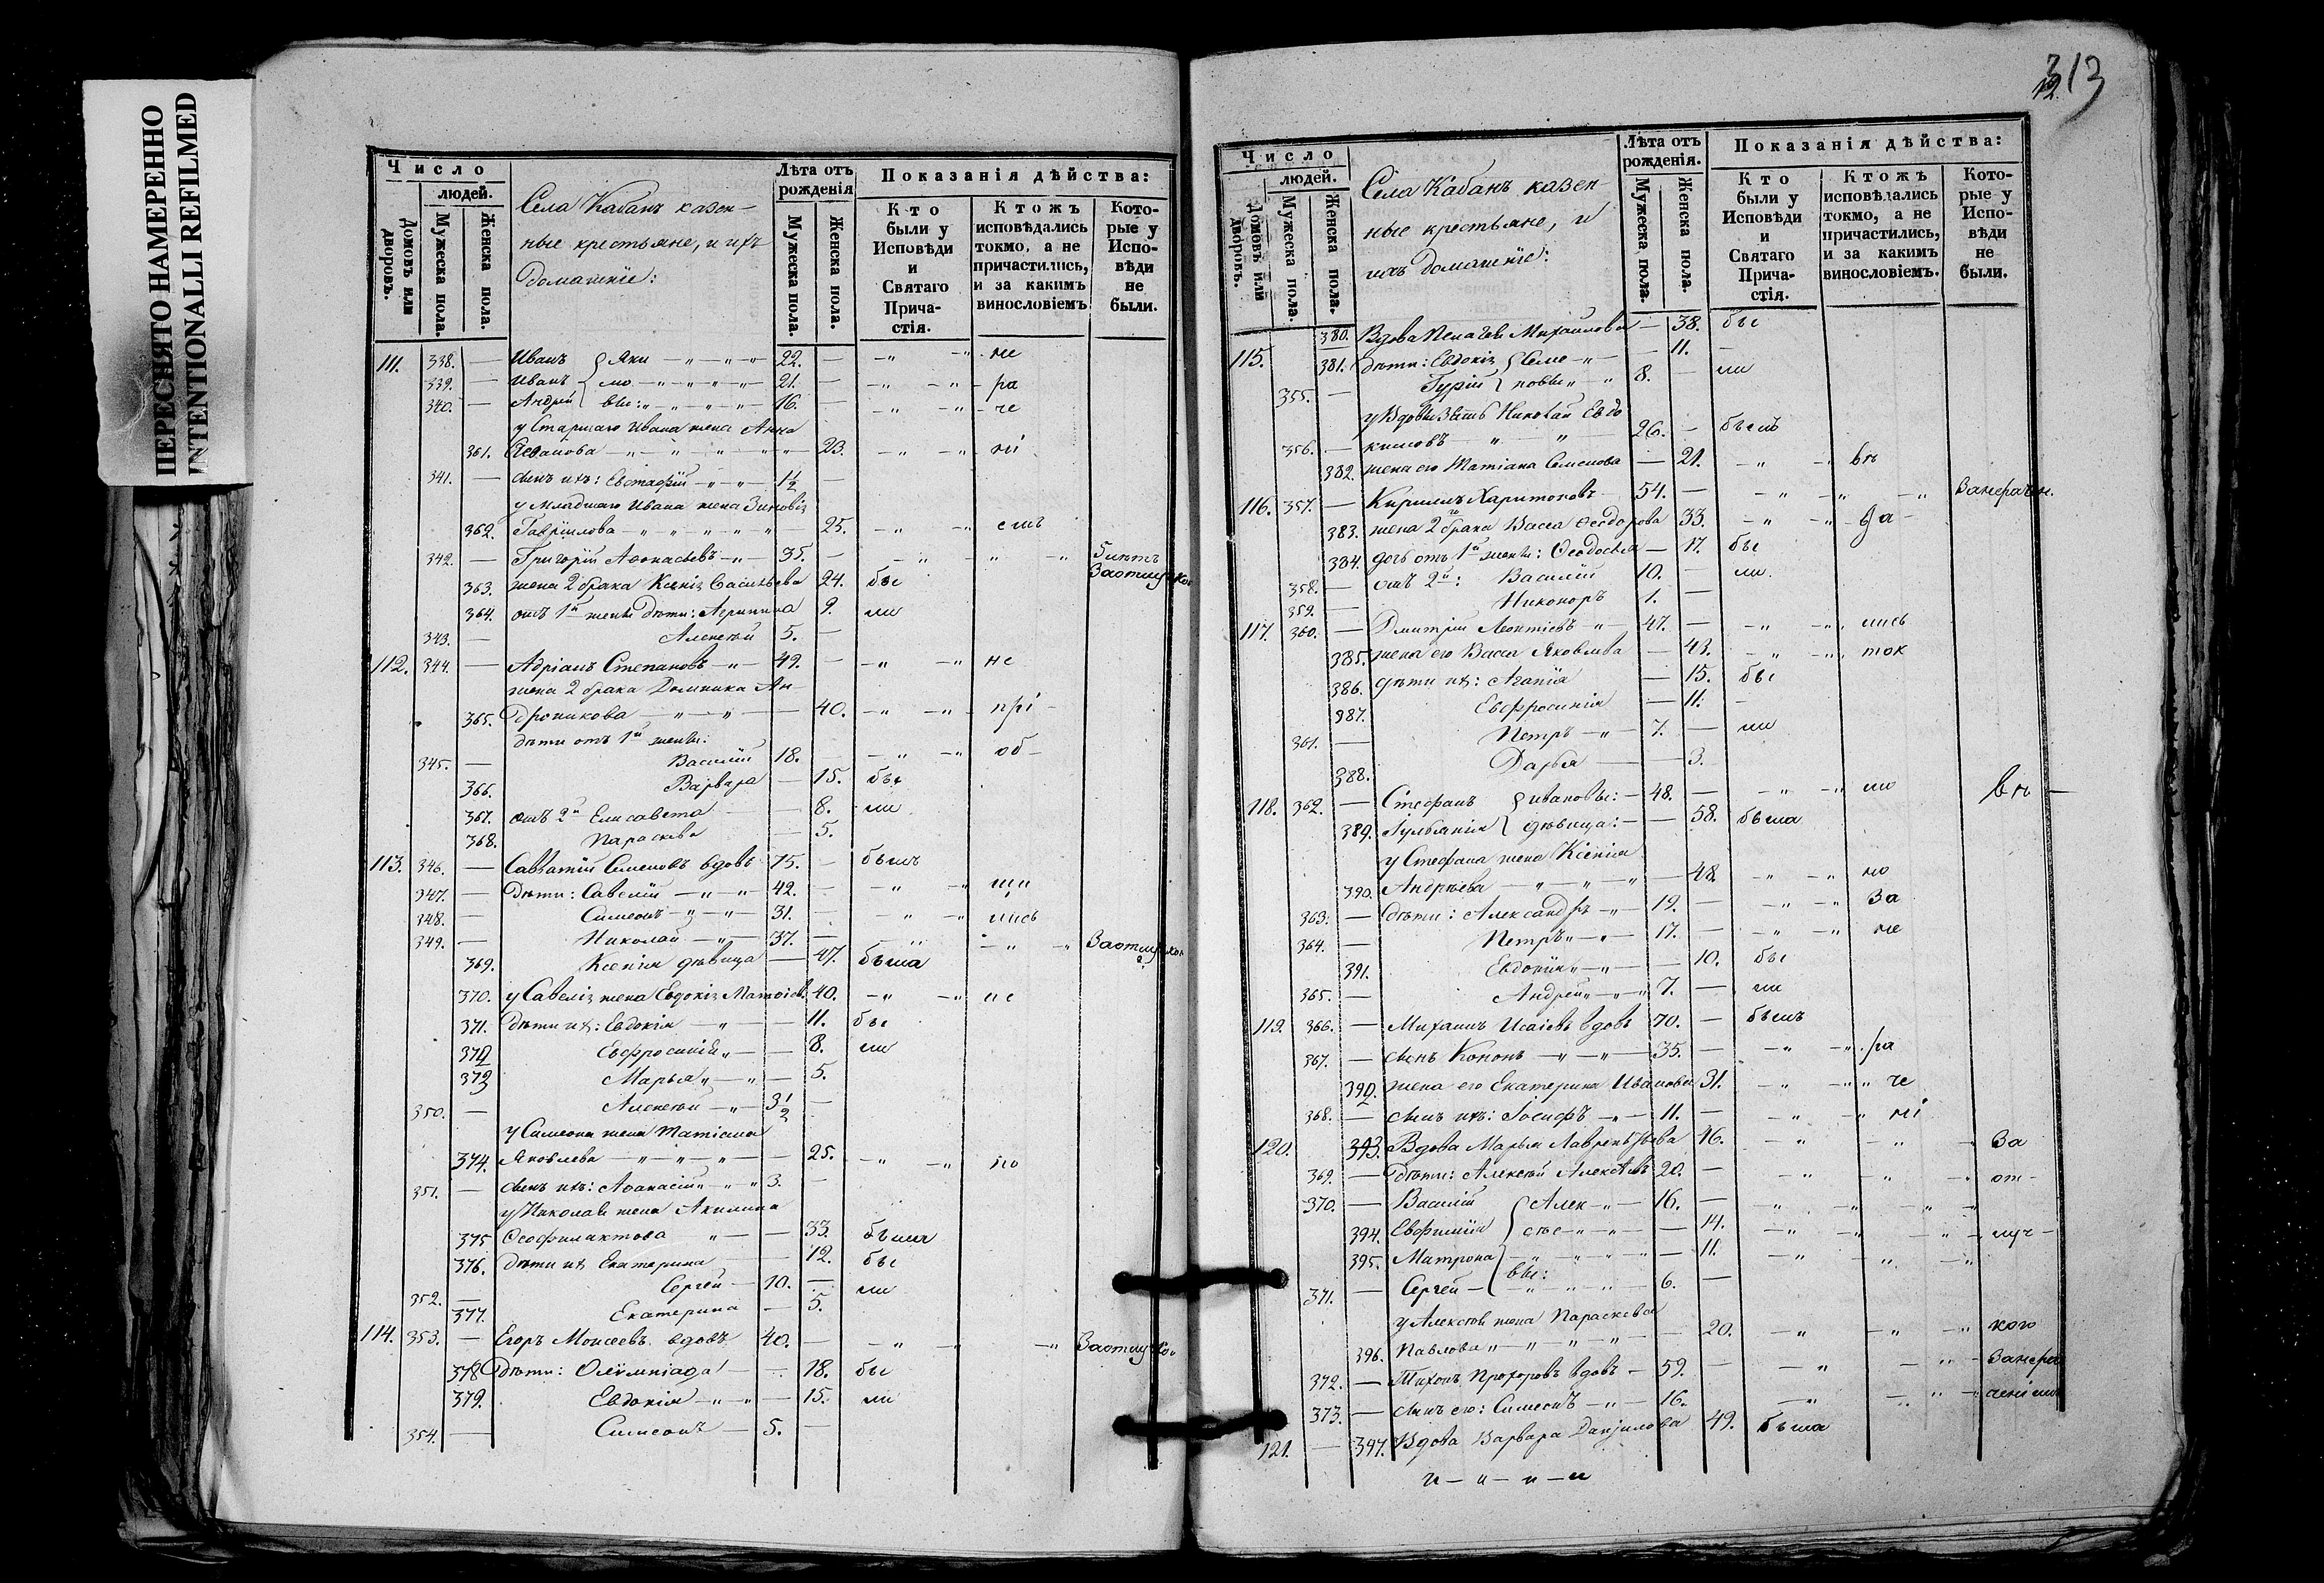 ПЕРЕСНЯТО НАМЕРЕННО
INTENTIONALLI REFILMED
Число
людей.
Домовъ или дворовъ.
Мужеска пола.
Женска пола.
Села Кабанъ казен-
ные крестьяне, и ихъ
домашніе:
Лѣта отъ рожденія
Мужеска пола.
Женска пола.
Показанія дѣйства:
Кто были у Исповѣди и Святаго Прича-стія.
Ктожъ исповѣдались токмо, а не причастились, и за какимъ винословіемъ
Кото-рые у Испо-вѣди не были.
111. 338. — Иванъ Яки 22. — не
339. — Иванъ мо 21. — ра
340. — Андрей вы: 16. — че
у Старшаго Ивана жена Анна
361. Степанова 23. ні
341. — сынъ ихъ: Евстафій 1½ —
у младшаго Ивана жена Зиновія
362. Гавріилова 25.
342. — Григорій Аѳонасьевъ 35. —
363. жена 2 брака Ксенія Васильева 24. бы
364. отъ 1й жены дѣти: Агрипина 9. ли
343. — Алексѣй 5. —
112. 344. — Адріанъ Степановъ 49. — не
жена 2 брака Домника Ан-
365. дроникова 40. прі
дѣти отъ 1й жены:
345. — Василій 18. об
366. Варвара — 15. бы
367. отъ 2й Елисавета — 8. ли
368. Параскева — 5.
113. 346. — Савватій Семеновъ вдовъ 75. — былъ
347. — Дѣти: Савелій 42. — щи
348. — Симеонъ 31. — лись
349. — Николай 37. — Заотлучкою
369. Ксенія дѣвица — 47. была
370. у Савелія жена Евдокія Матѳіев. 40. не
371. Дѣти ихъ: Евдокія — 11. бы
372 Евфросинія — 8. ли
373 Марья — 5.
350. — Алексѣй 3½ —
у Симеона жена Татіана
374. Яковлева — 25. по
351. — сынъ ихъ: Аѳанасій 3. —
у Николая жена Акилина
375 Ѳеофилактова — 33. была
376. дѣти ихъ Екатерина 12. бы
352. — Сергей 10. — ли
377. Екатерина — 5.
114. 353. — Егоръ Моисеевъ вдовъ 40. — Заотлучкою
378 Дѣти: Олимпіада — 18. бы
379. Евдокія — 15. ли
354. — Симеонъ 5. —
313
Число
людей.
Домовъ или дворовъ.
Мужеска пола.
Женска пола.
Села Кабанъ казен-
ные крестьяне, и
ихъ домашніе:
Лѣта отъ рожденія.
Мужеска пола.
Женска пола.
Показанія дѣйства:
Кто были у Исповѣди и Святаго Прича-стія.
Ктожъ исповѣдались токмо, а не причастились, и за какимъ винословіемъ.
Кото-рые у Испо-вѣди не были.
380. Вдова Пелагея Михаилова — 38. бы
115. 381. Дѣти: Евдокія Семе — 11. —
355. — Гурій новы 8. — ли
у Вдовы зять Николай Евдо
356. — кимовъ 26. — былъ
382. жена его Татіана Семенова — 21. въ
116. 357. — Кирилъ Харитоновъ 54. —
383. жена 2го брака Васса Ѳеодорова 33.
384. дочь отъ 1й жены: Ѳеодосья — 17. бы
358. — отъ 2й: Василій 10. — ли.
359. — Никоноръ 1. —
117. 360. — Дмитрій Леонтіевъ 47. — лись
385. жена его Васса Яковлева — 43. ток
386. дѣти ихъ: Агапія — 15. бы
387. Евфросинія — 11. —
361. — Петръ 7. — ли
388. Дарья — 3.
118. 362. — Стефанъ Ивановы: 48. — мо въ
389. Гульянія дѣвица: — 58. была
у Стефана жена Ксенія
390. Андреева — 48 по
363. — Дѣти: Александръ 19. — за
364. — Петръ 17. — не
391. Евдокія — 10. бы
365. — Андрей 7. — ли
119. 366. — Михаилъ Исаіевъ вдовъ 70. — былъ
367. — сынъ Кононъ 35. — ра
392 жена его Екатерина Иванова 31. че
368. — сынъ ихъ: Іосифъ 11. — ні
120. 393. Вдова Марья Лаврентьева 46. За
369. — Дѣти: Алексѣй Алексѣевъ 20. — от-
370. — Василій Алек 16. —
394. Евфимія сѣе — 14. луч-
395. Матрона — 11.
371. — Сергей вы: 6. —
у Алексѣя жена Параскева
396. Павлова — 20. кою
372. — Тихонъ Прохоровъ вдовъ 59. — Занера
373. — сынъ его: Симеонъ 16. —
121. — 397. Вдова Варвара Даніилова 49. была